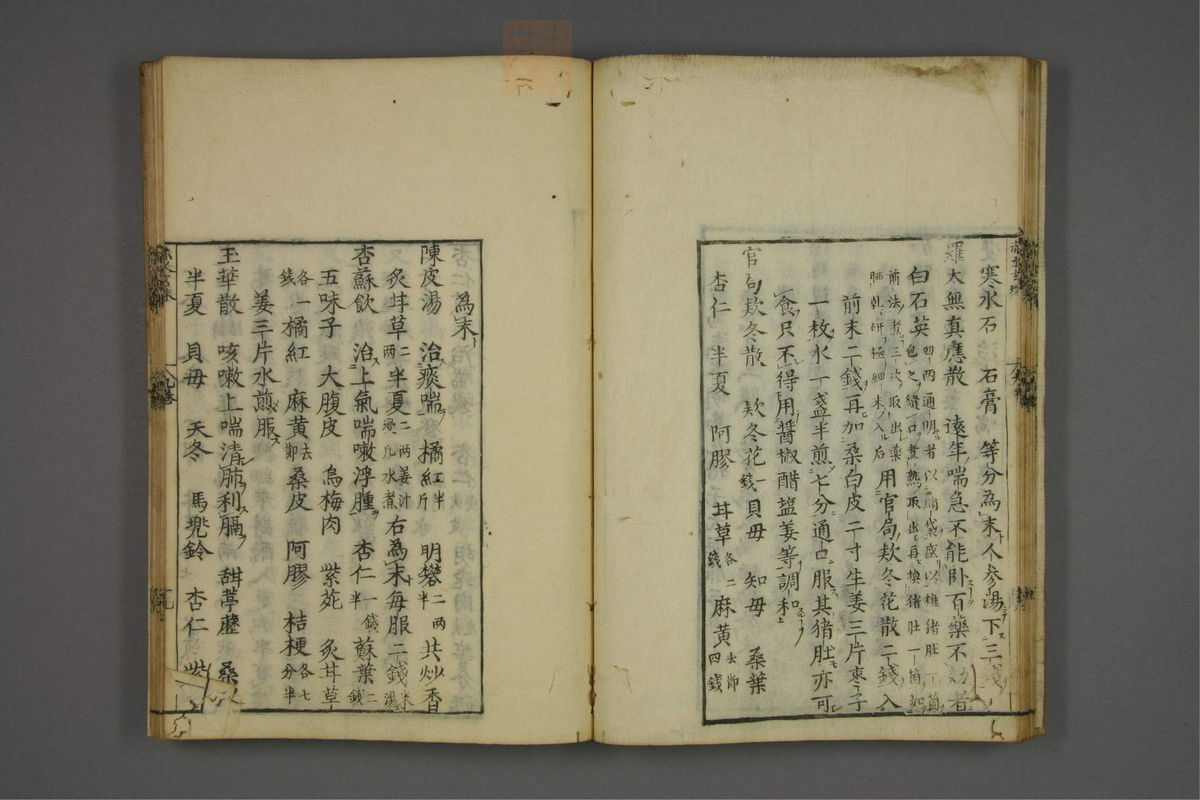 寒水石 石膏 等分為末人參湯下三錢
羅太無真應散 遠年喘急不能卧百藥不効者
白石英四兩通明者以絹袋盛以雄猪肚一箇
包之縫口煮熟取出再換猪肚一箇如
前法煮三次取出藥
晒乾研極細末入后用官局款冬花散二錢入
前末二錢再加桑白皮二寸生姜三片棗子
一枚水一盞半煎七分通口服其猪肚亦可
食只不得用醤椒醋塩姜等調和
官局款冬散 款冬花一錢貝母 知母 桑葉
杏仁 半夏 阿膠 甘草各二錢麻黄去節四錢
為末
陳皮湯 治痰喘 橘紅半斤 明礬二兩半 共炒香
炙甘草二兩半夏二兩姜汁浸 水煮右為末每服二錢米湯
杏蘇飲 治上氣喘嗽浮腫 杏仁一錢半 蘇葉二錢
五味子 大腹皮 烏梅肉 紫苑 炙甘草
各一錢橘紅 麻黄去節 桑皮 阿膠 桔梗各七分半
姜三片水煎服
玉華散 咳嗽上喘清肺利膈 甜葶藶 桑
半夏 貝母 天冬 馬兜鈴 杏仁 紫